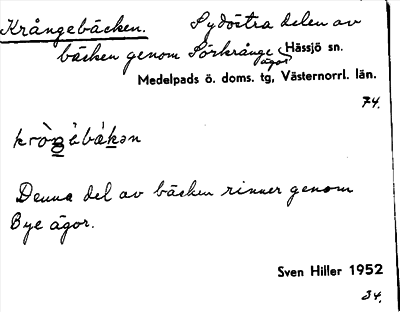 Krångebäcken. Sydöstra delen av
bäcken genom Sörkrånge ägor Hässjö sn.
Medelpads ö. doms. tg, Västernorrl. län.
74.
Denna del av bäcken rinner genom
Bye ägor.
Sven Hiller 1952
34.